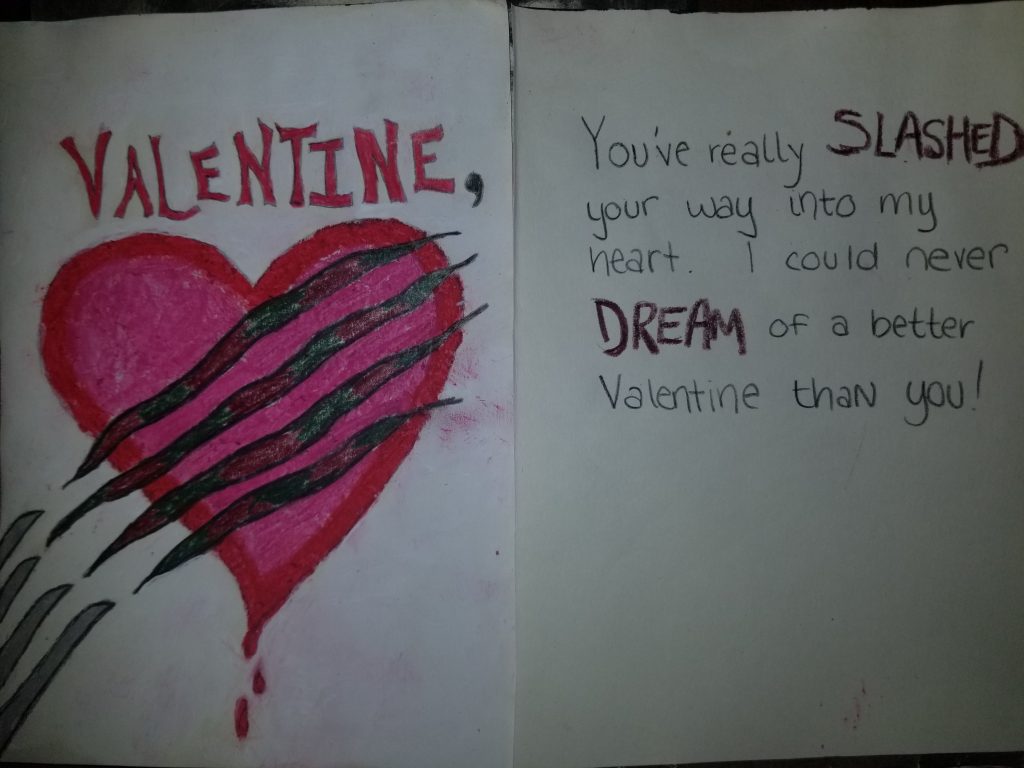 VALENTINE,
You've really SLASHED
your way into my
heart. I could never
DREAM of a better
Valentine than you!